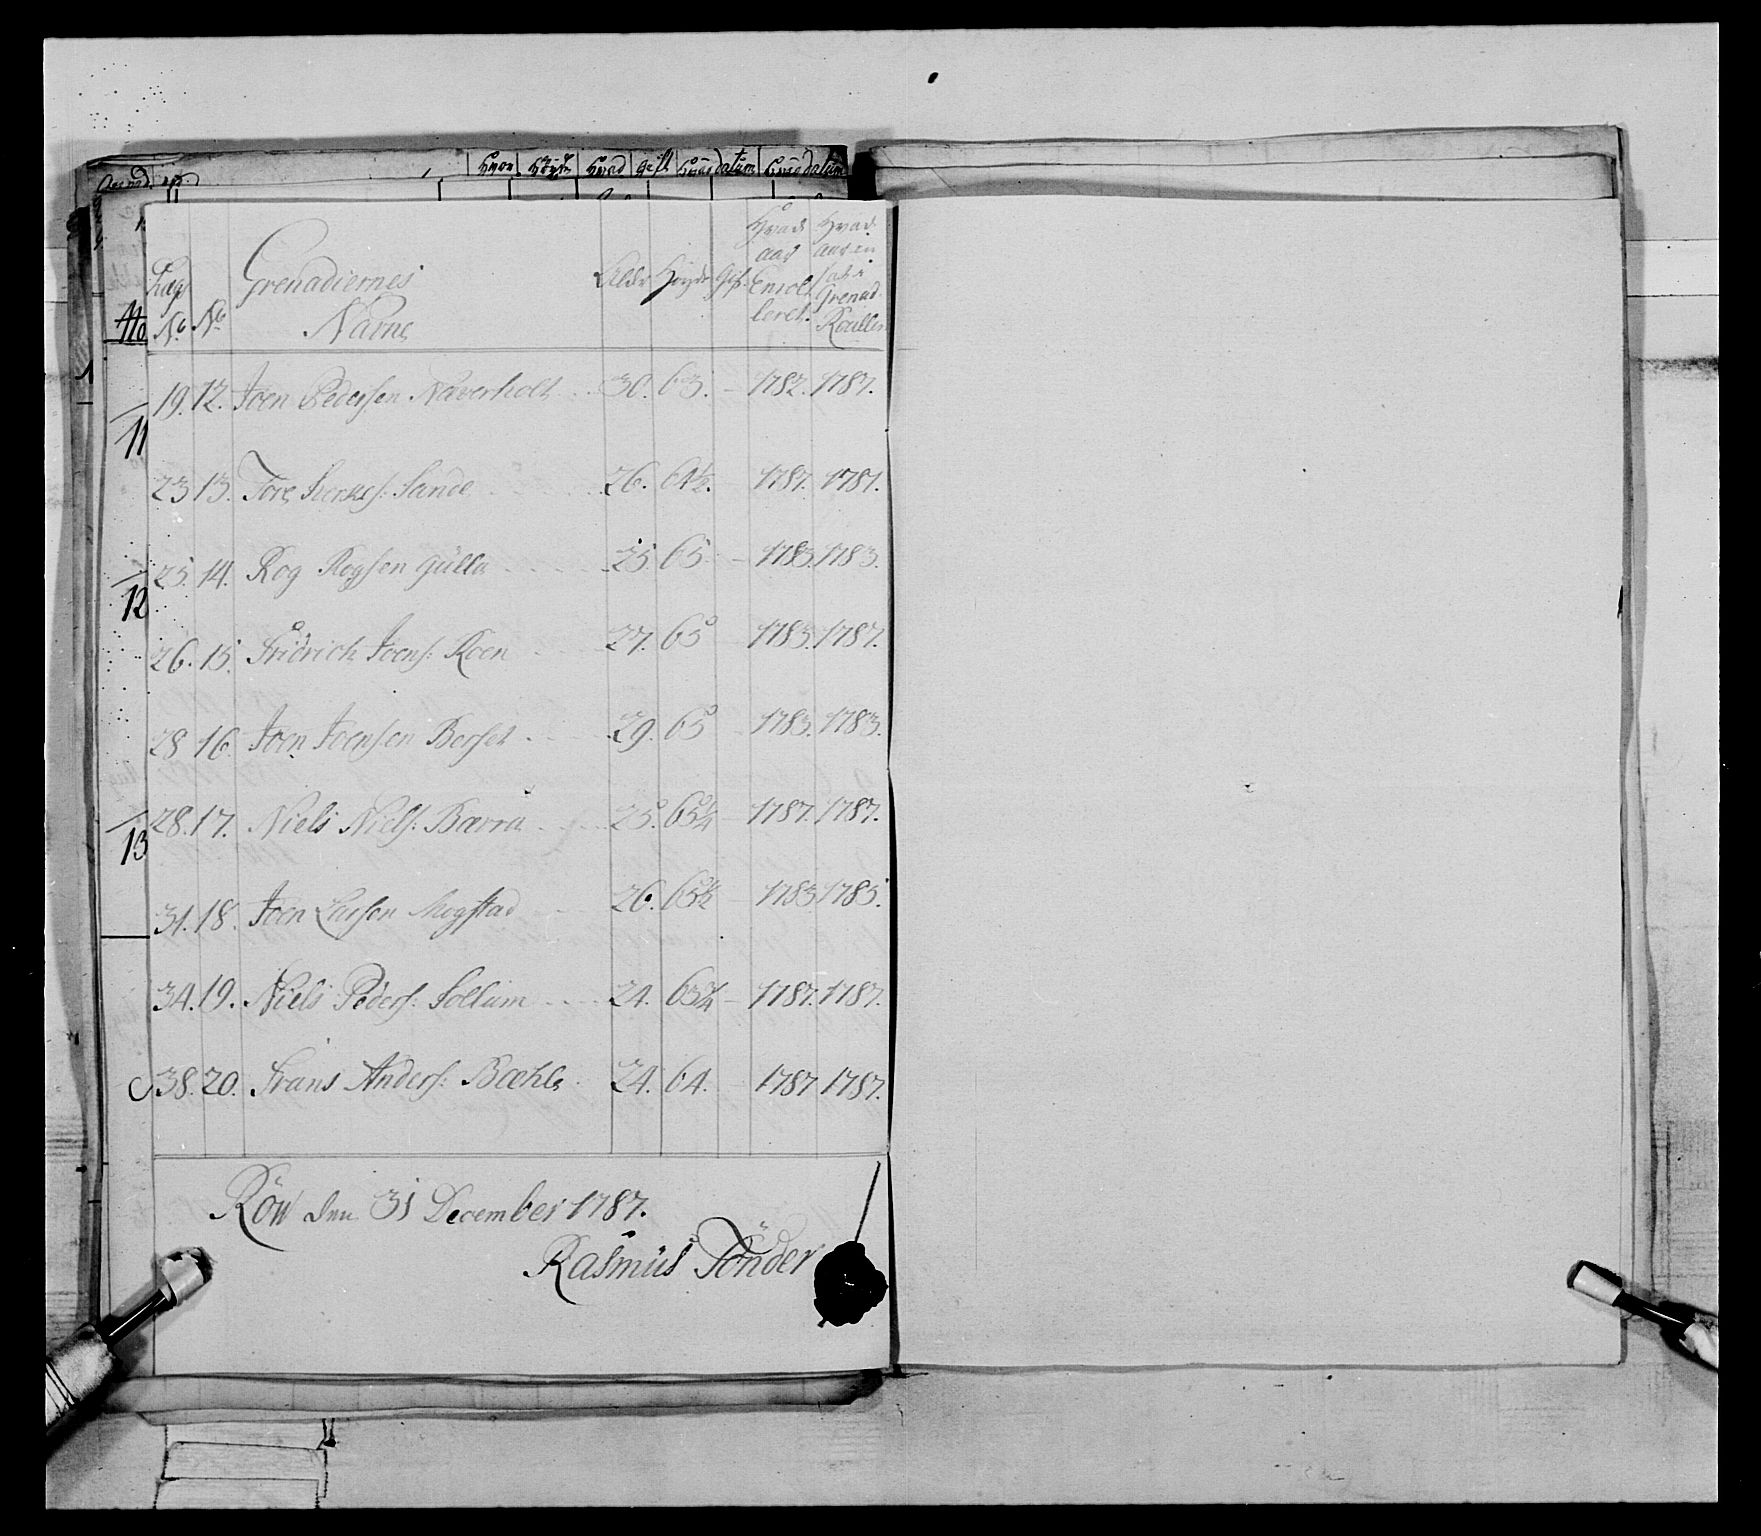 Hvor Høyde Hvad gift Hvad datum Hvad datum
Læg No. No. Grenadiernes Navne Alder Høyde Gift Hvad aar Enrolleret. Hvad aar in Grenad Roullen
19. 12. Joen Pedersen Naverholt 30. 63. – 1782. 1787.
11
23 13. Tore Sande 26. 64½. 1787. 1787.
25. 14. Rog Rogsen Gülla 25. 65. – 1783. 1783.
12
26. 15. Fridrich Joens: Roen 27. 65 1783. 1787.
28 16. Joen Joensen Berset 29. 65 1783. 1783.
28. 17. Niels Niels: Bævra 25. 65¼ 1787. 1787.
13
31. 18. Joen Larsen Mogstad 26. 65½ 1783 1785.
34. 19. Niels Peders: Sollüm 24. 65¼ – 1787. 1787.
38. 20. Frans Anders: Bœhle 24. 64. 1787 1787.
Röw den 31 December 1787.
Rasmüs Tönder